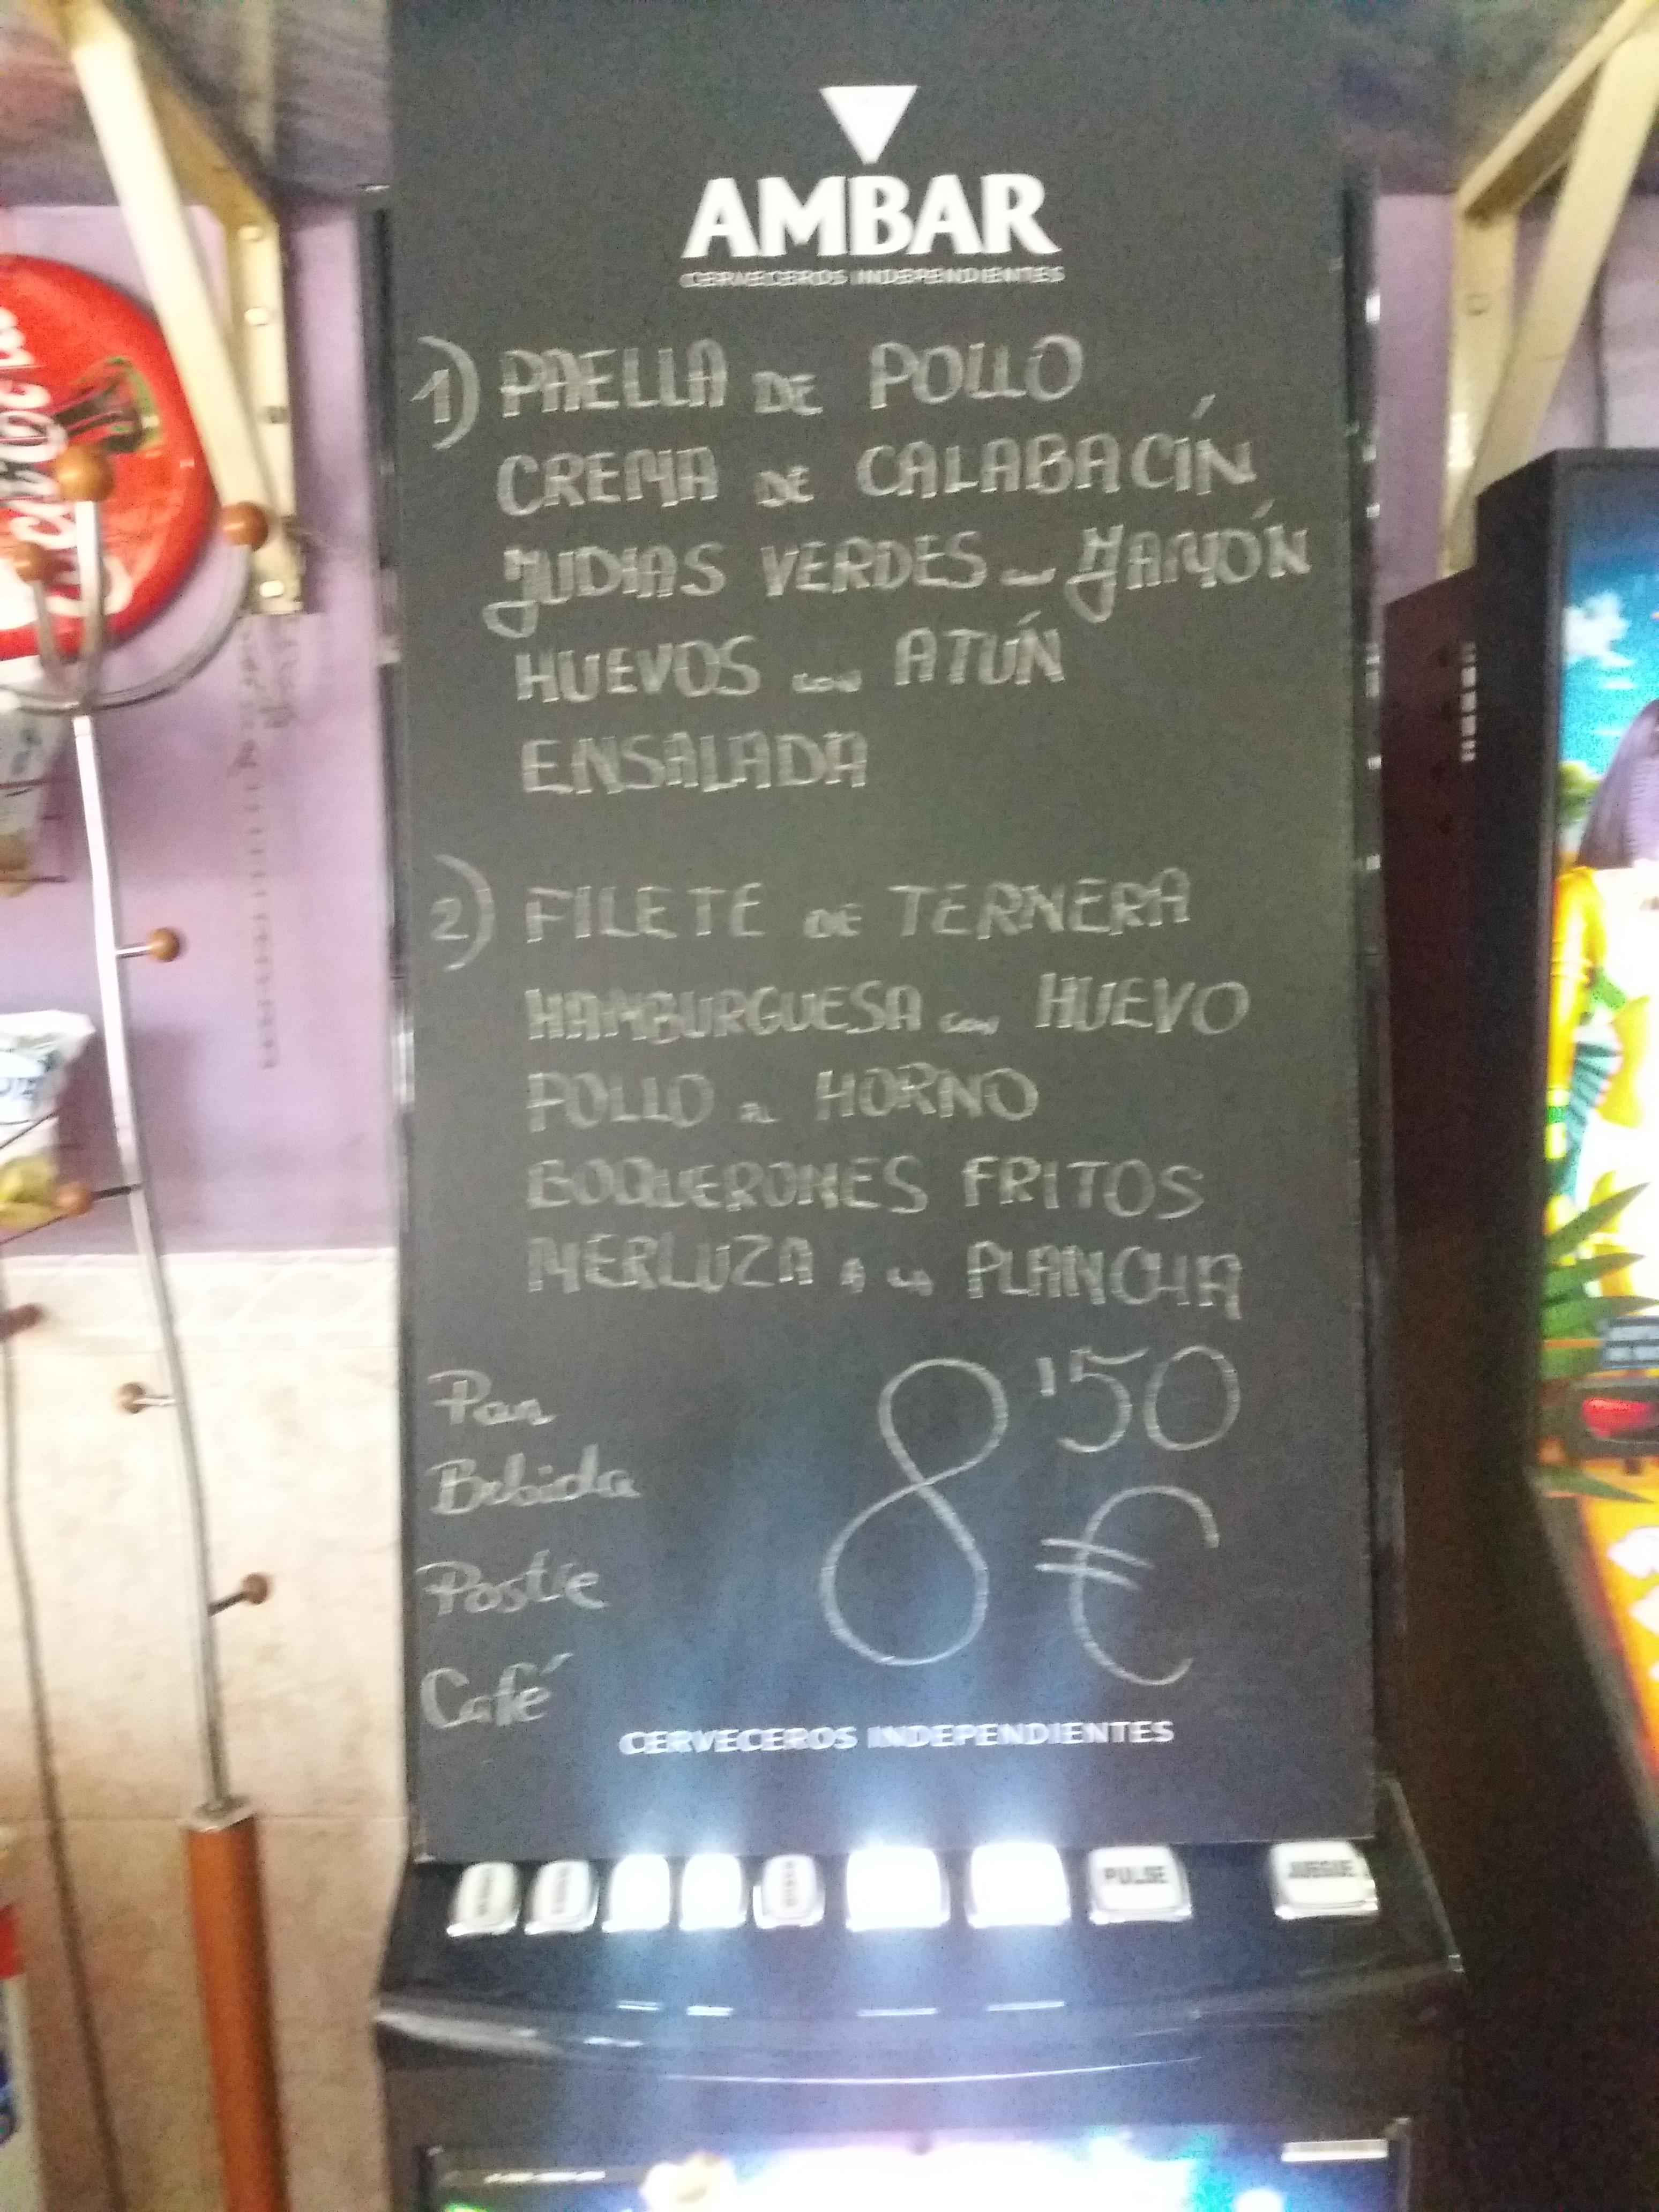 AMBAR
CERVECEROS INDEPENDIENTES
1) PAELLA DE POLLO
CREMA DE CALABACÍN
JUDIAS VERDES con JAMÓN
HUEVOS con ATÚN
ENSALADA
2) FILETE DE TERNERA
HAMBURGUESA con HUEVO
POLLO AL HORNO
BOQUERONES FRITOS
MERLUZA A LA PLANCHA
Pan
Bebida
Postre
Café
8'50
€
CERVECEROS INDEPENDIENTES
PULSE
JUEGUE